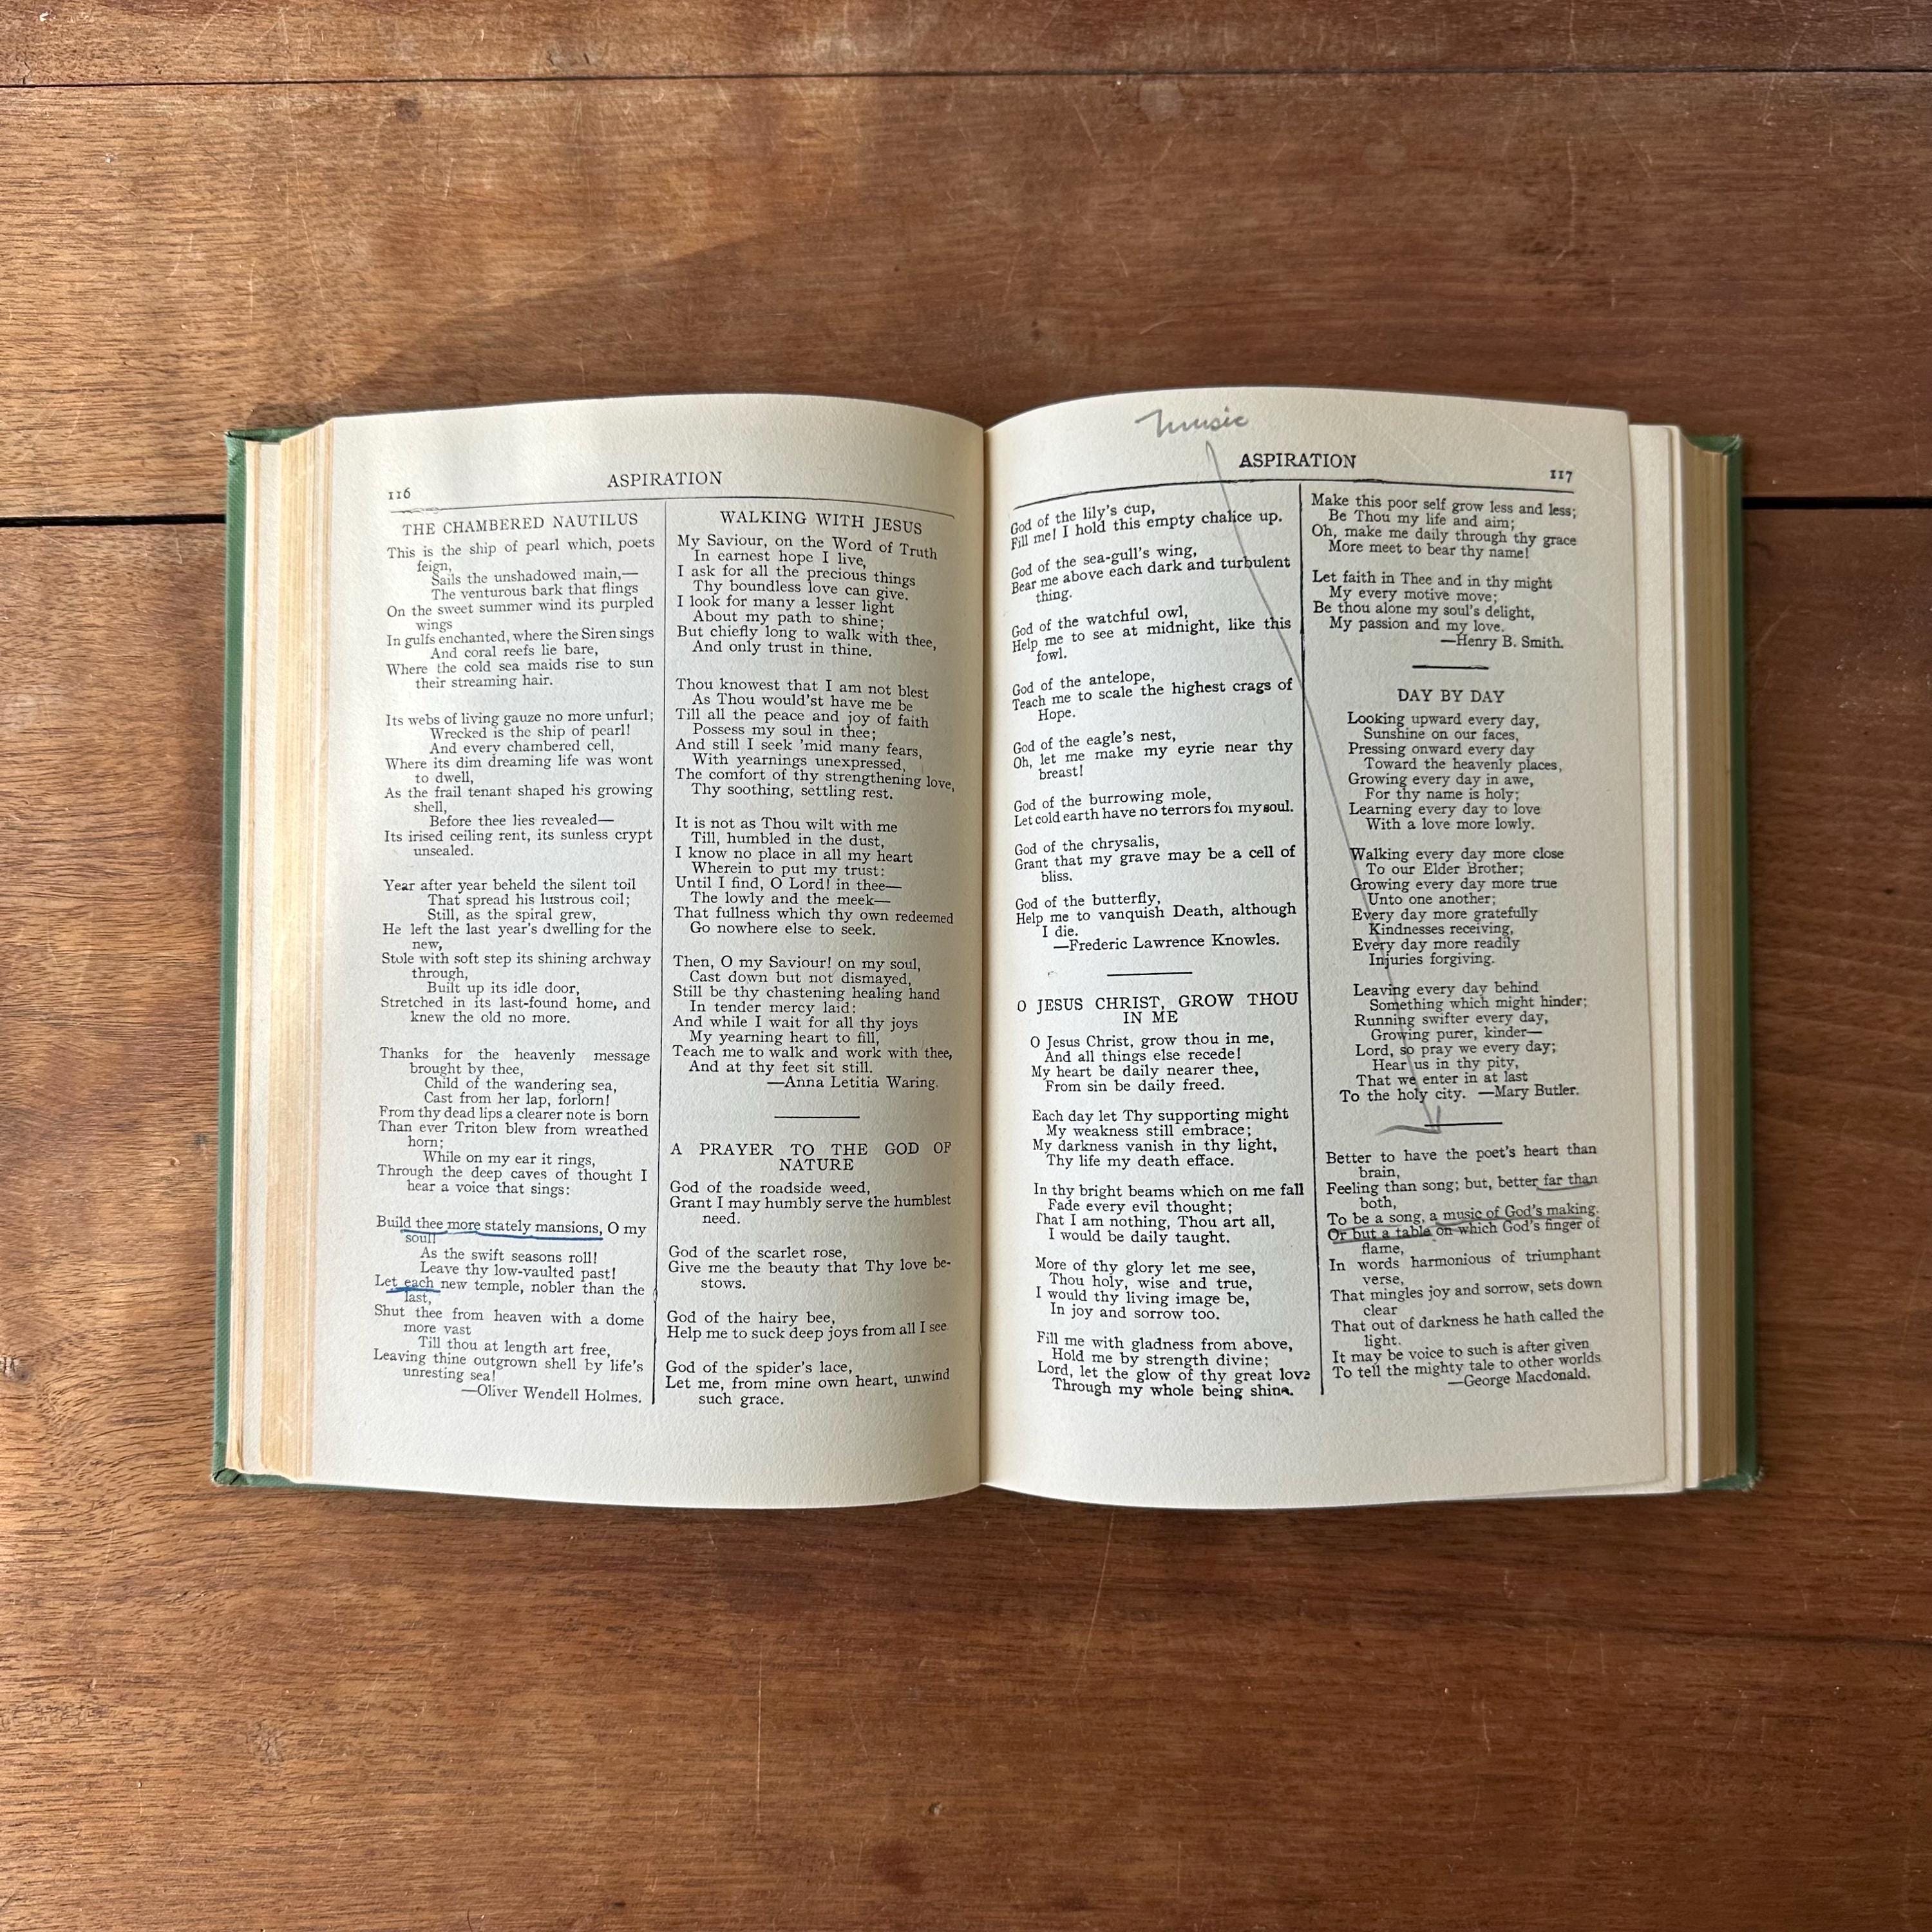 116
ASPIRATION
THE CHAMBERED NAUTILUS
This is the ship of pearl which, poets
feign,
Sails the unshadowed main,—
The venturous bark that flings
On the sweet summer wind its purpled
wings
In gulfs enchanted, where the Siren sings
And coral reefs lie bare,
Where the cold sea maids rise to sun
their streaming hair.
Its webs of living gauze no more unfurl;
Wrecked is the ship of pearl!
And every chambered cell,
Where its dim dreaming life was wont
to dwell,
As the frail tenant shaped his growing
shell,
Before thee lies revealed—
Its irised ceiling rent, its sunless crypt
unsealed.
Year after year beheld the silent toil
That spread his lustrous coil;
Still, as the spiral grew,
He left the last year's dwelling for the
new,
Stole with soft step its shining archway
through,
Built up its idle door,
Stretched in its last-found home, and
knew the old no more.
Thanks for the heavenly message
brought by thee,
Child of the wandering sea,
Cast from her lap, forlorn!
From thy dead lips a clearer note is born
Than ever Triton blew from wreathed
horn;
While on my ear it rings,
Through the deep caves of thought I
hear a voice that sings:
Build thee more stately mansions, O my
soul!
As the swift seasons roll!
Leave thy low-vaulted past!
Let each new temple, nobler than the
last,
Shut thee from heaven with a dome
more vast
Till thou at length art free,
Leaving thine outgrown shell by life's
unresting sea!
—Oliver Wendell Holmes.
WALKING WITH JESUS
My Saviour, on the Word of Truth
In earnest hope I live,
I ask for all the precious things
Thy boundless love can give.
I look for many a lesser light
About my path to shine;
But chiefly long to walk with thee,
And only trust in thine.
Thou knowest that I am not blest
As Thou would'st have me be
Till all the peace and joy of faith
Possess my soul in thee;
And still I seek 'mid many fears,
With yearnings unexpressed,
The comfort of thy strengthening love,
Thy soothing, settling rest.
It is not as Thou wilt with me
Till, humbled in the dust,
I know no place in all my heart
Wherein to put my trust:
Until I find, O Lord! in thee—
The lowly and the meek—
That fullness which thy own redeemed
Go nowhere else to seek.
Then, O my Saviour! on my soul,
Cast down but not dismayed,
Still be thy chastening healing hand
In tender mercy laid:
And while I wait for all thy joys
My yearning heart to fill,
Teach me to walk and work with thee,
And at thy feet sit still.
—Anna Letitia Waring.
A PRAYER TO THE GOD OF
NATURE
God of the roadside weed,
Grant I may humbly serve the humblest
need.
God of the scarlet rose,
Give me the beauty that Thy love be-
stows.
God of the hairy bee,
Help me to suck deep joys from all I see.
God of the spider's lace,
Let me, from mine own heart, unwind
such grace.
music
ASPIRATION
117
God of the lily's cup,
Fill me! I hold this empty chalice up.
God of the sea-gull's wing,
Bear me above each dark and turbulent
thing.
God of the watchful owl,
Help me to see at midnight, like this
fowl.
God of the antelope,
Teach me to scale the highest crags of
Hope.
God of the eagle's nest,
Oh, let me make my eyrie near thy
breast!
God of the burrowing mole,
Let cold earth have no terrors for my soul.
God of the chrysalis,
Grant that my grave may be a cell of
bliss.
God of the butterfly,
Help me to vanquish Death, although
I die.
—Frederic Lawrence Knowles.
O JESUS CHRIST, GROW THOU
IN ME
O Jesus Christ, grow thou in me,
And all things else recede!
My heart be daily nearer thee,
From sin be daily freed.
Each day let Thy supporting might
My weakness still embrace;
My darkness vanish in thy light,
Thy life my death efface.
In thy bright beams which on me fall
Fade every evil thought;
That I am nothing, Thou art all,
I would be daily taught.
More of thy glory let me see,
Thou holy, wise and true,
I would thy living image be,
In joy and sorrow too.
Fill me with gladness from above,
Hold me by strength divine;
Lord, let the glow of thy great love
Through my whole being shine.
Make this poor self grow less and less;
Be Thou my life and aim;
Oh, make me daily through thy grace
More meet to bear thy name!
Let faith in Thee and in thy might
My every motive move;
Be thou alone my soul's delight,
My passion and my love.
—Henry B. Smith.
DAY BY DAY
Looking upward every day,
Sunshine on our faces,
Pressing onward every day
Toward the heavenly places,
Growing every day in awe,
For thy name is holy;
Learning every day to love
With a love more lowly.
Walking every day more close
To our Elder Brother;
Growing every day more true
Unto one another;
Every day more gratefully
Kindnesses receiving,
Every day more readily
Injuries forgiving.
Leaving every day behind
Something which might hinder;
Running swifter every day,
Growing purer, kinder—
Lord, so pray we every day;
Hear us in thy pity,
That we enter in at last
To the holy city. —Mary Butler.
Better to have the poet's heart than
brain,
Feeling than song; but, better far than
both,
To be a song, a music of God's making.
Or but a table on which God's finger of
flame,
In words harmonious of triumphant
verse,
That mingles joy and sorrow, sets down
clear
That out of darkness he hath called the
light.
It may be voice to such is after given
To tell the mighty tale to other worlds
—George Macdonald.